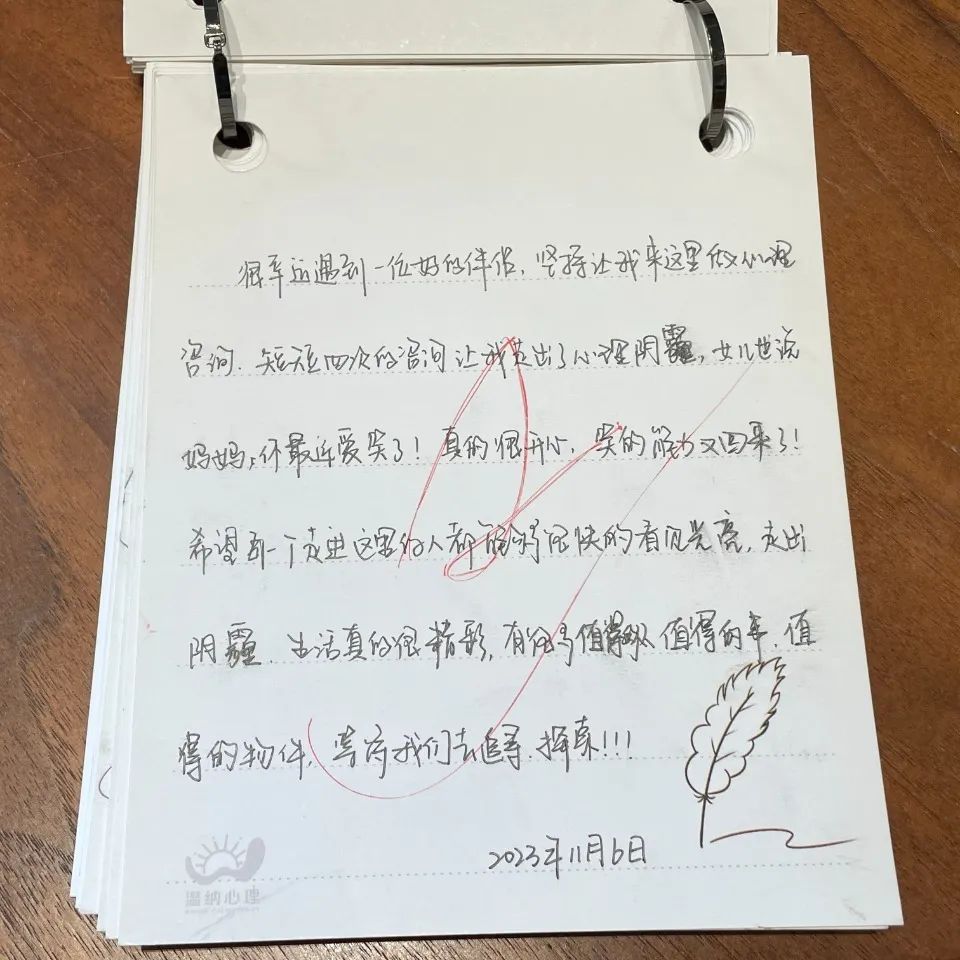 很幸运遇到一位好的伴侣，坚持让我来这里做心理
咨询. 短短四次的咨询让我走出了心理阴霾，女儿也说
妈妈，你最近爱笑了！真的很开心，笑的能力又回来了！
希望每一个走进这里的人都能够很快的看见光亮，走出
阴霾. 生活真的很精彩，有很多值得的人 值得的事，值
得的物件，等待我们去追寻.探索!!!
2023年11月6日
温纳心理